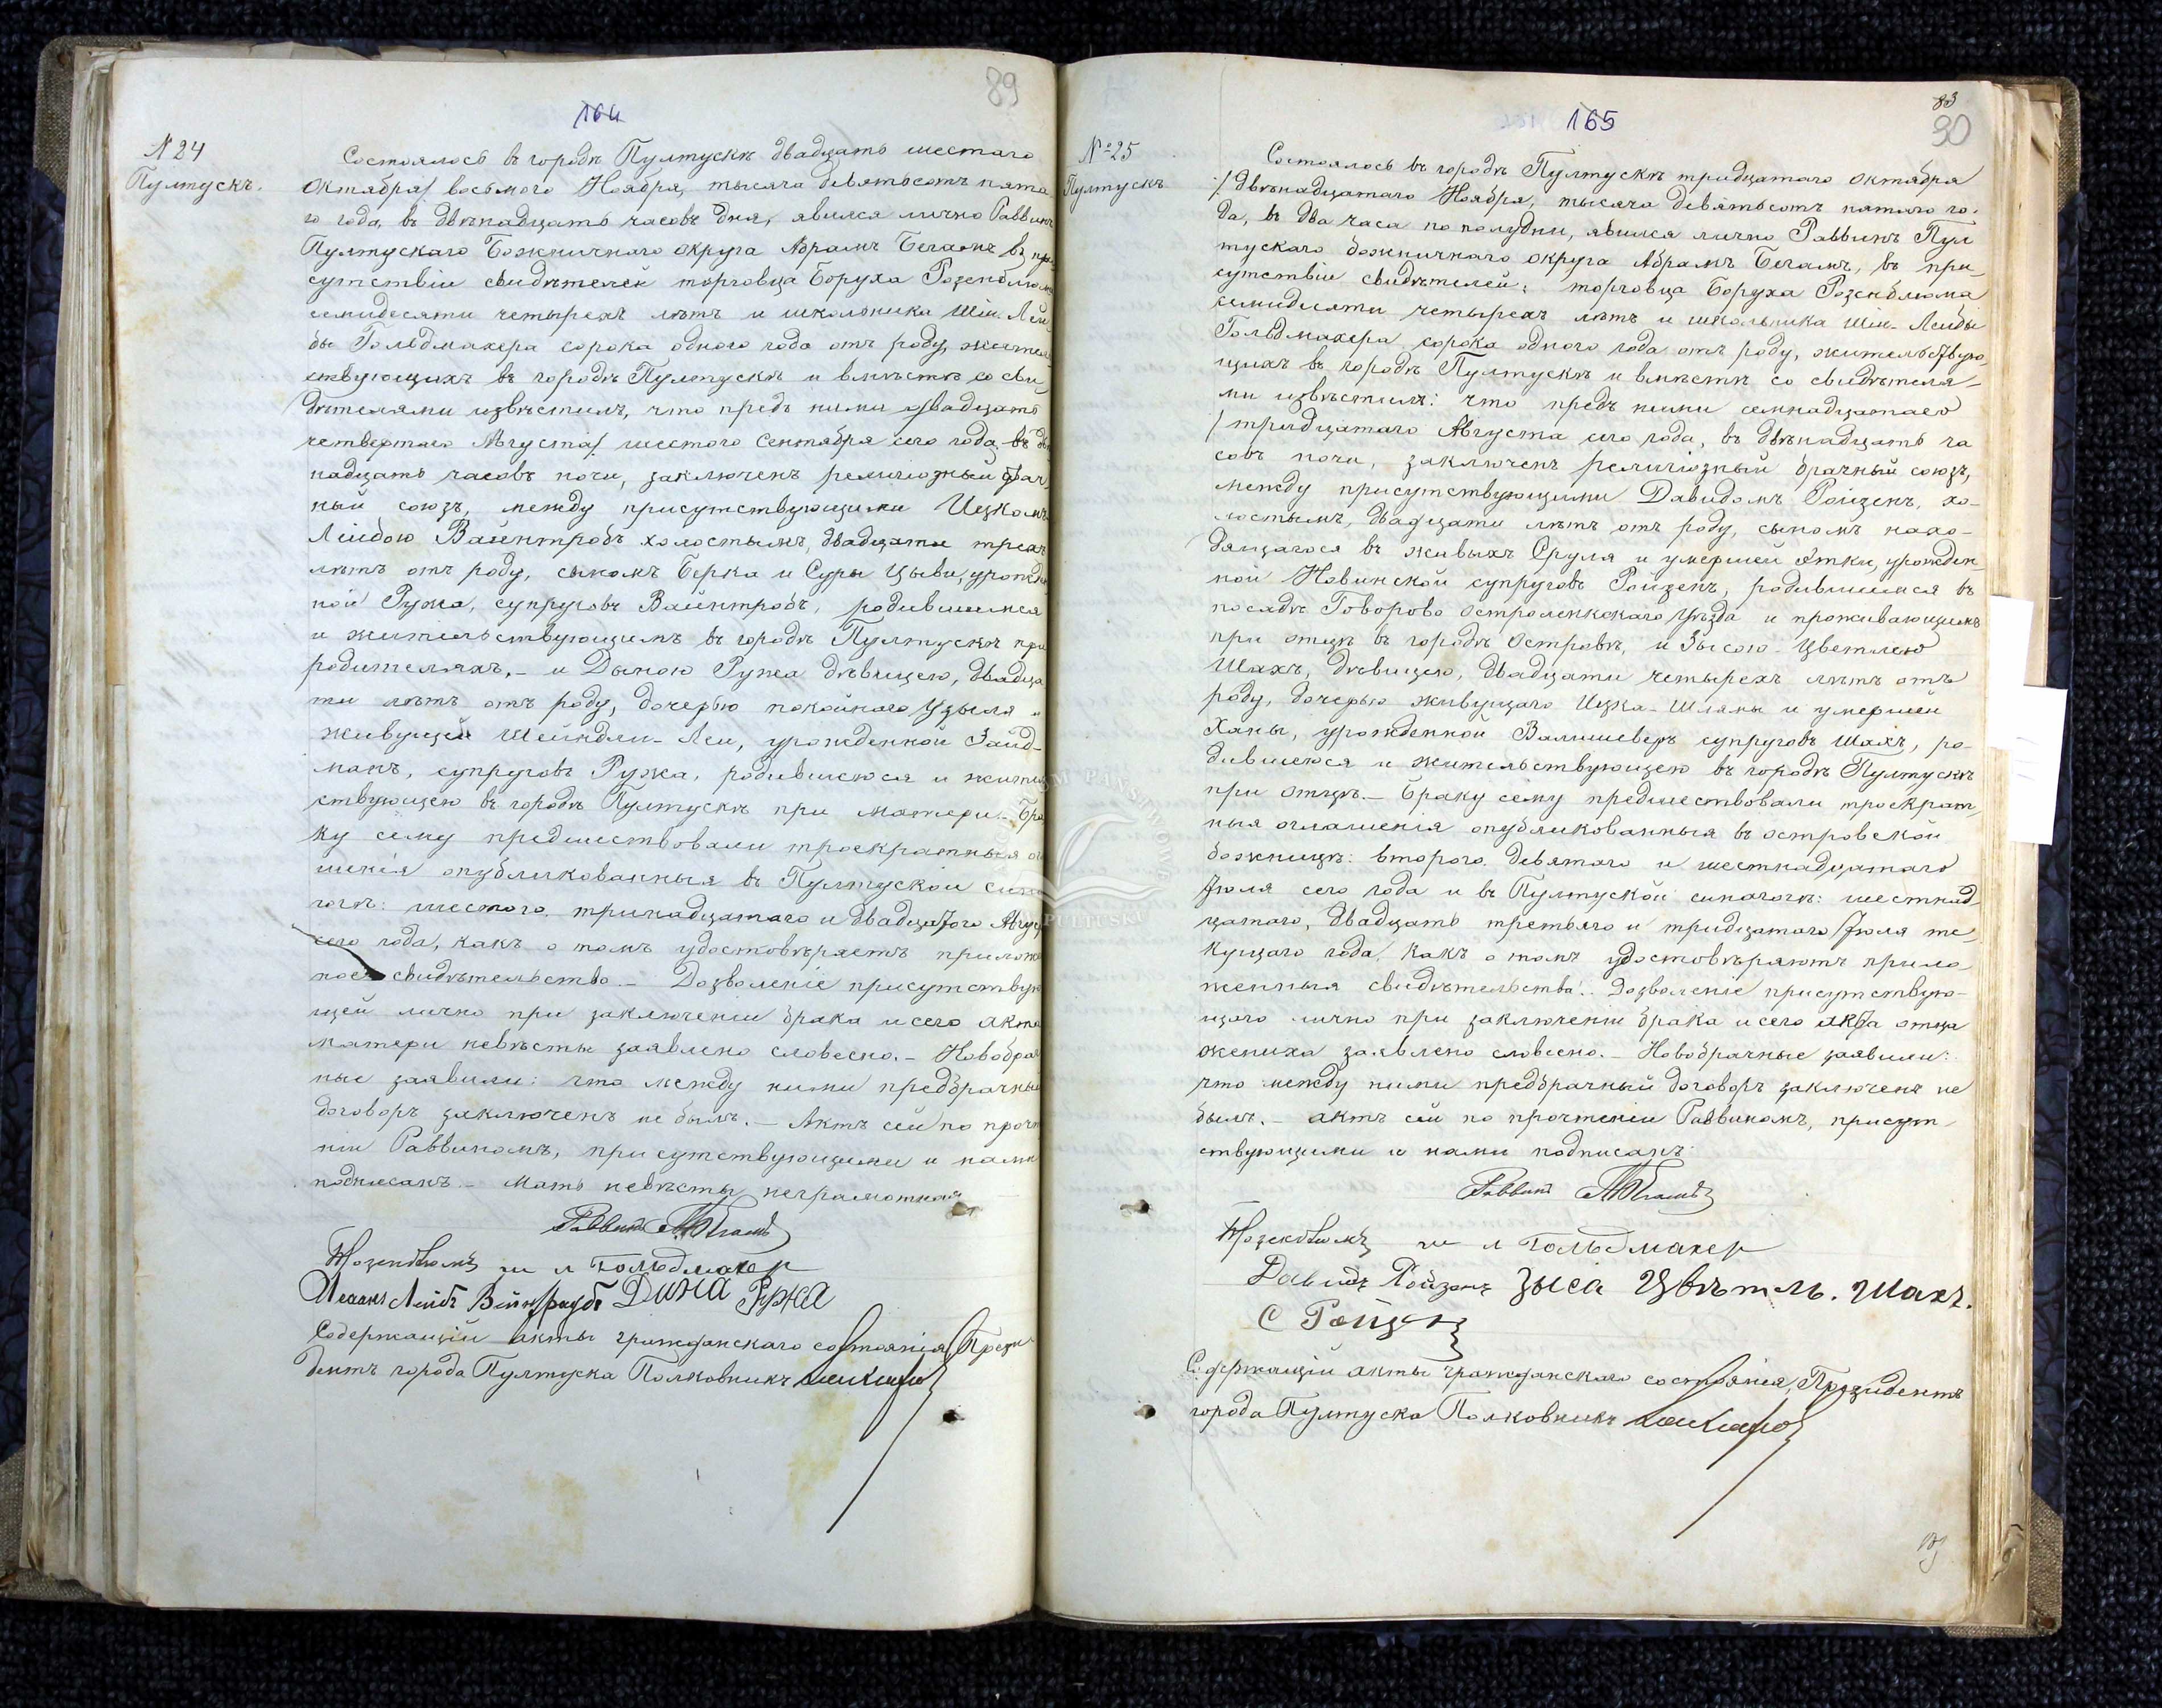 89
164
N 24
Пултускъ.
Состоялось въ городѣ Пултускѣ двадцать шестаго
Октября/ восьмого Ноября, тысяча девятьсотъ пята
го года, въ двѣнадцать часовъ дня, явился лично Раввинъ
Пултускаго Божничнаго округа Абрамъ Бегамъ въ при
сутствіи свидѣтелей торговца Боруха Розенблюма
семидесяти четырехъ лѣтъ и школьника Шіи Лей
бы Гольдмахера сорока одного года отъ роду, житель
ствующихъ въ городѣ Пултускѣ и вмѣстѣ со сви
дѣтелями извѣстилъ, что предъ ними двадцать
четвертаго Августа/ шестого Сентября сего года въ двѣ
надцать часовъ ночи, заключенъ религіозный брач
ный союзъ, между присутствующими Ицкомъ
Лейбою Вайнтробъ холостымъ, двадцати трехъ
лѣтъ отъ роду, сыномъ Берка и Суры Цывы, урожден
ной Ружа, супруговъ Вайнтробъ, родившимся
и жительствующимъ въ городѣ Пултускѣ при
родителяхъ, – и Дыною Ружа дѣвицею, двадца
ти лѣтъ отъ роду, дочерью покойнаго Узыля и
живущей Шейндли-Леи, урожденной Зайд-
манъ, супруговъ Ружа, родившеюся и житель
ствующею въ городѣ Пултускѣ при матери. – Бра
ку сему предшествовали троекратныя огла
шенія опубликованныя въ Пултуской сина
гогѣ: шестого, тринадцатаго и двадцатого Августа
сего года, какъ о томъ удостовѣряетъ приложен
ное свидѣтельство. – Дозволеніе присутствую
щей лично при заключеніи брака и сего акта
матери невѣсты заявлено словесно. – Новобрач
ные заявили: что между ними предбрачный
договоръ заключенъ не былъ. – Актъ сей по прочте
ніи Раввиномъ, присутствующими и нами
подписанъ. – Мать невѣсты неграмотная
Раввинъ А. Бегамъ
Розенблюмъ ш л Гольдмахер
Ицекъ Лейбъ Вайнтраубъ Дина Ружа
Содержащій акты гражданскаго состоянія Прези
дентъ города Пултуска Полковникъ
83
90
165
№ 25
Пултускъ
Состоялось въ городѣ Пултускѣ тридцатаго октября
/двѣнадцатаго Ноября, тысяча девятьсотъ пятаго го-
да, въ два часа по полудни, явился лично Раввинъ Пул
тускаго божничнаго округа Абрамъ Бегамъ, въ при-
сутствіи свидѣтелей: торговца Боруха Розенблюма
семидесяти четырехъ лѣтъ и школьника Шіи-Лейбы
Гольдмахера сорока одного года отъ роду, жительствую
щихъ въ городѣ Пултускѣ и вмѣстѣ со свидѣтеля-
ми извѣстилъ: что предъ ними семнадцатаго
/тридцатаго Августа сего года, въ двѣнадцать ча
совъ ночи, заключенъ религіозный брачный союзъ,
между присутствующими Давидомъ Ройзенъ, хо-
лостымъ, двадцати лѣтъ отъ роду, сыномъ нахо-
дящагося въ живыхъ Сруля и умершей Этки, урожден-
ной Новинской супруговъ Ройзенъ, родившимся въ
посадѣ Говорово Остроленкскаго уѣзда и проживающимъ
при отцѣ въ городѣ Островѣ, и Зысою-Цветлею
Шахъ, дѣвицею, двадцати четырехъ лѣтъ отъ
роду, дочерью живущаго Ицка-Шлямы и умершей
Ханы, урожденной Валишеверъ супруговъ Шахъ, ро-
дившеюся и жительствующею въ городѣ Пултускѣ
при отцѣ. – Браку сему предшествовали троекрат-
ныя оглашенія опубликованныя въ островской
божницѣ: второго, девятаго и шестнадцатаго
Іюля сего года и въ Пултуской синагогѣ: шестнад
цатаго, двадцать третьяго и тридцатаго Іюля те-
кущаго года, какъ о томъ удостовѣряютъ прило-
женныя свидѣтельства. Дозволеніе присутствую-
щаго лично при заключеніи брака и сего акта отца
жениха заявлено словесно. – Новобрачные заявили:
что между ними предбрачный договоръ заключенъ не
былъ. – актъ сей по прочтеніи Раввиномъ, присут-
ствующими и нами подписанъ:
Раввинъ А. Бегамъ
Розенблюмъ ш л Гольдмахер
Давидъ Ройзенъ Зыса Цвѣтль. Шахъ.
С Ройзен
Содержащій акты гражданскаго состоянія, Президентъ
города Пултуска Полковникъ